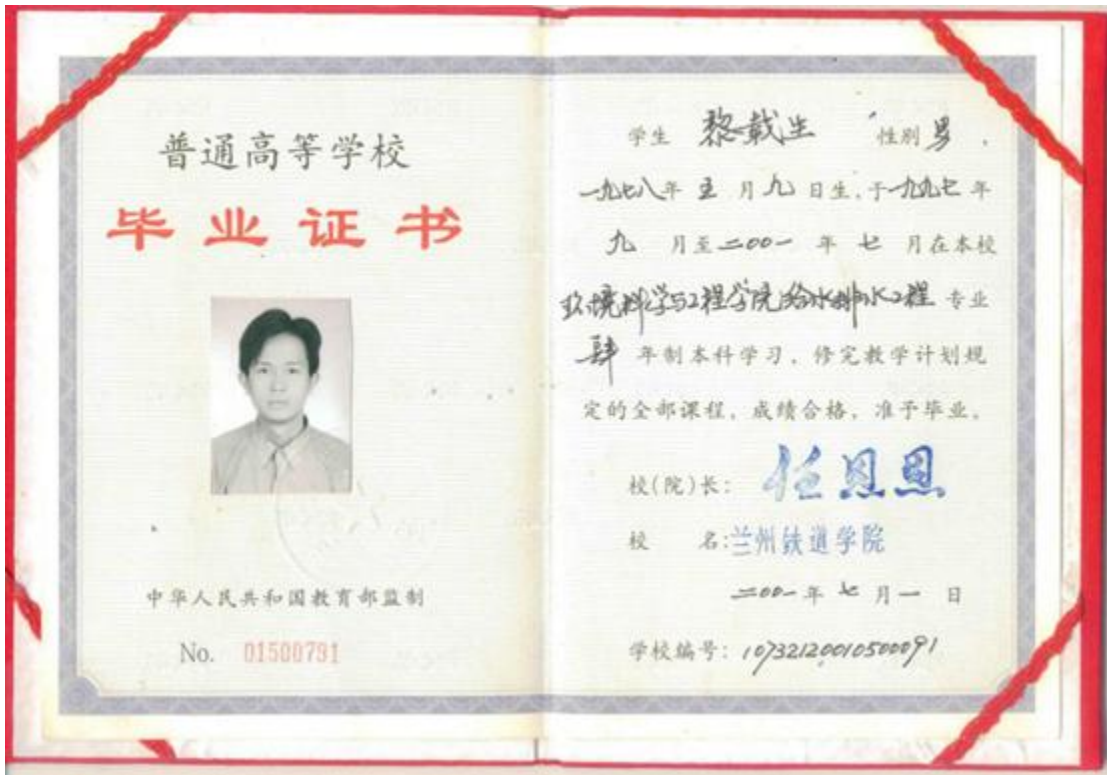 普通高等学校
毕业证书
中华人民共和国教育部监制
No. 01500791
学生 黎载生 性别 男 ,
一九七八年 五 月 九 日生,于一九九七 年
九 月至二〇〇一 年 七 月在本校
环境科学与工程学院给水排水工程 专业
肆 年制本科学习,修完教学计划规
定的全部课程,成绩合格,准予毕业。
校(院)长: 任恩恩
校 名:兰州铁道学院
二〇〇一年 七 月 一 日
学校编号: 10732120010500091